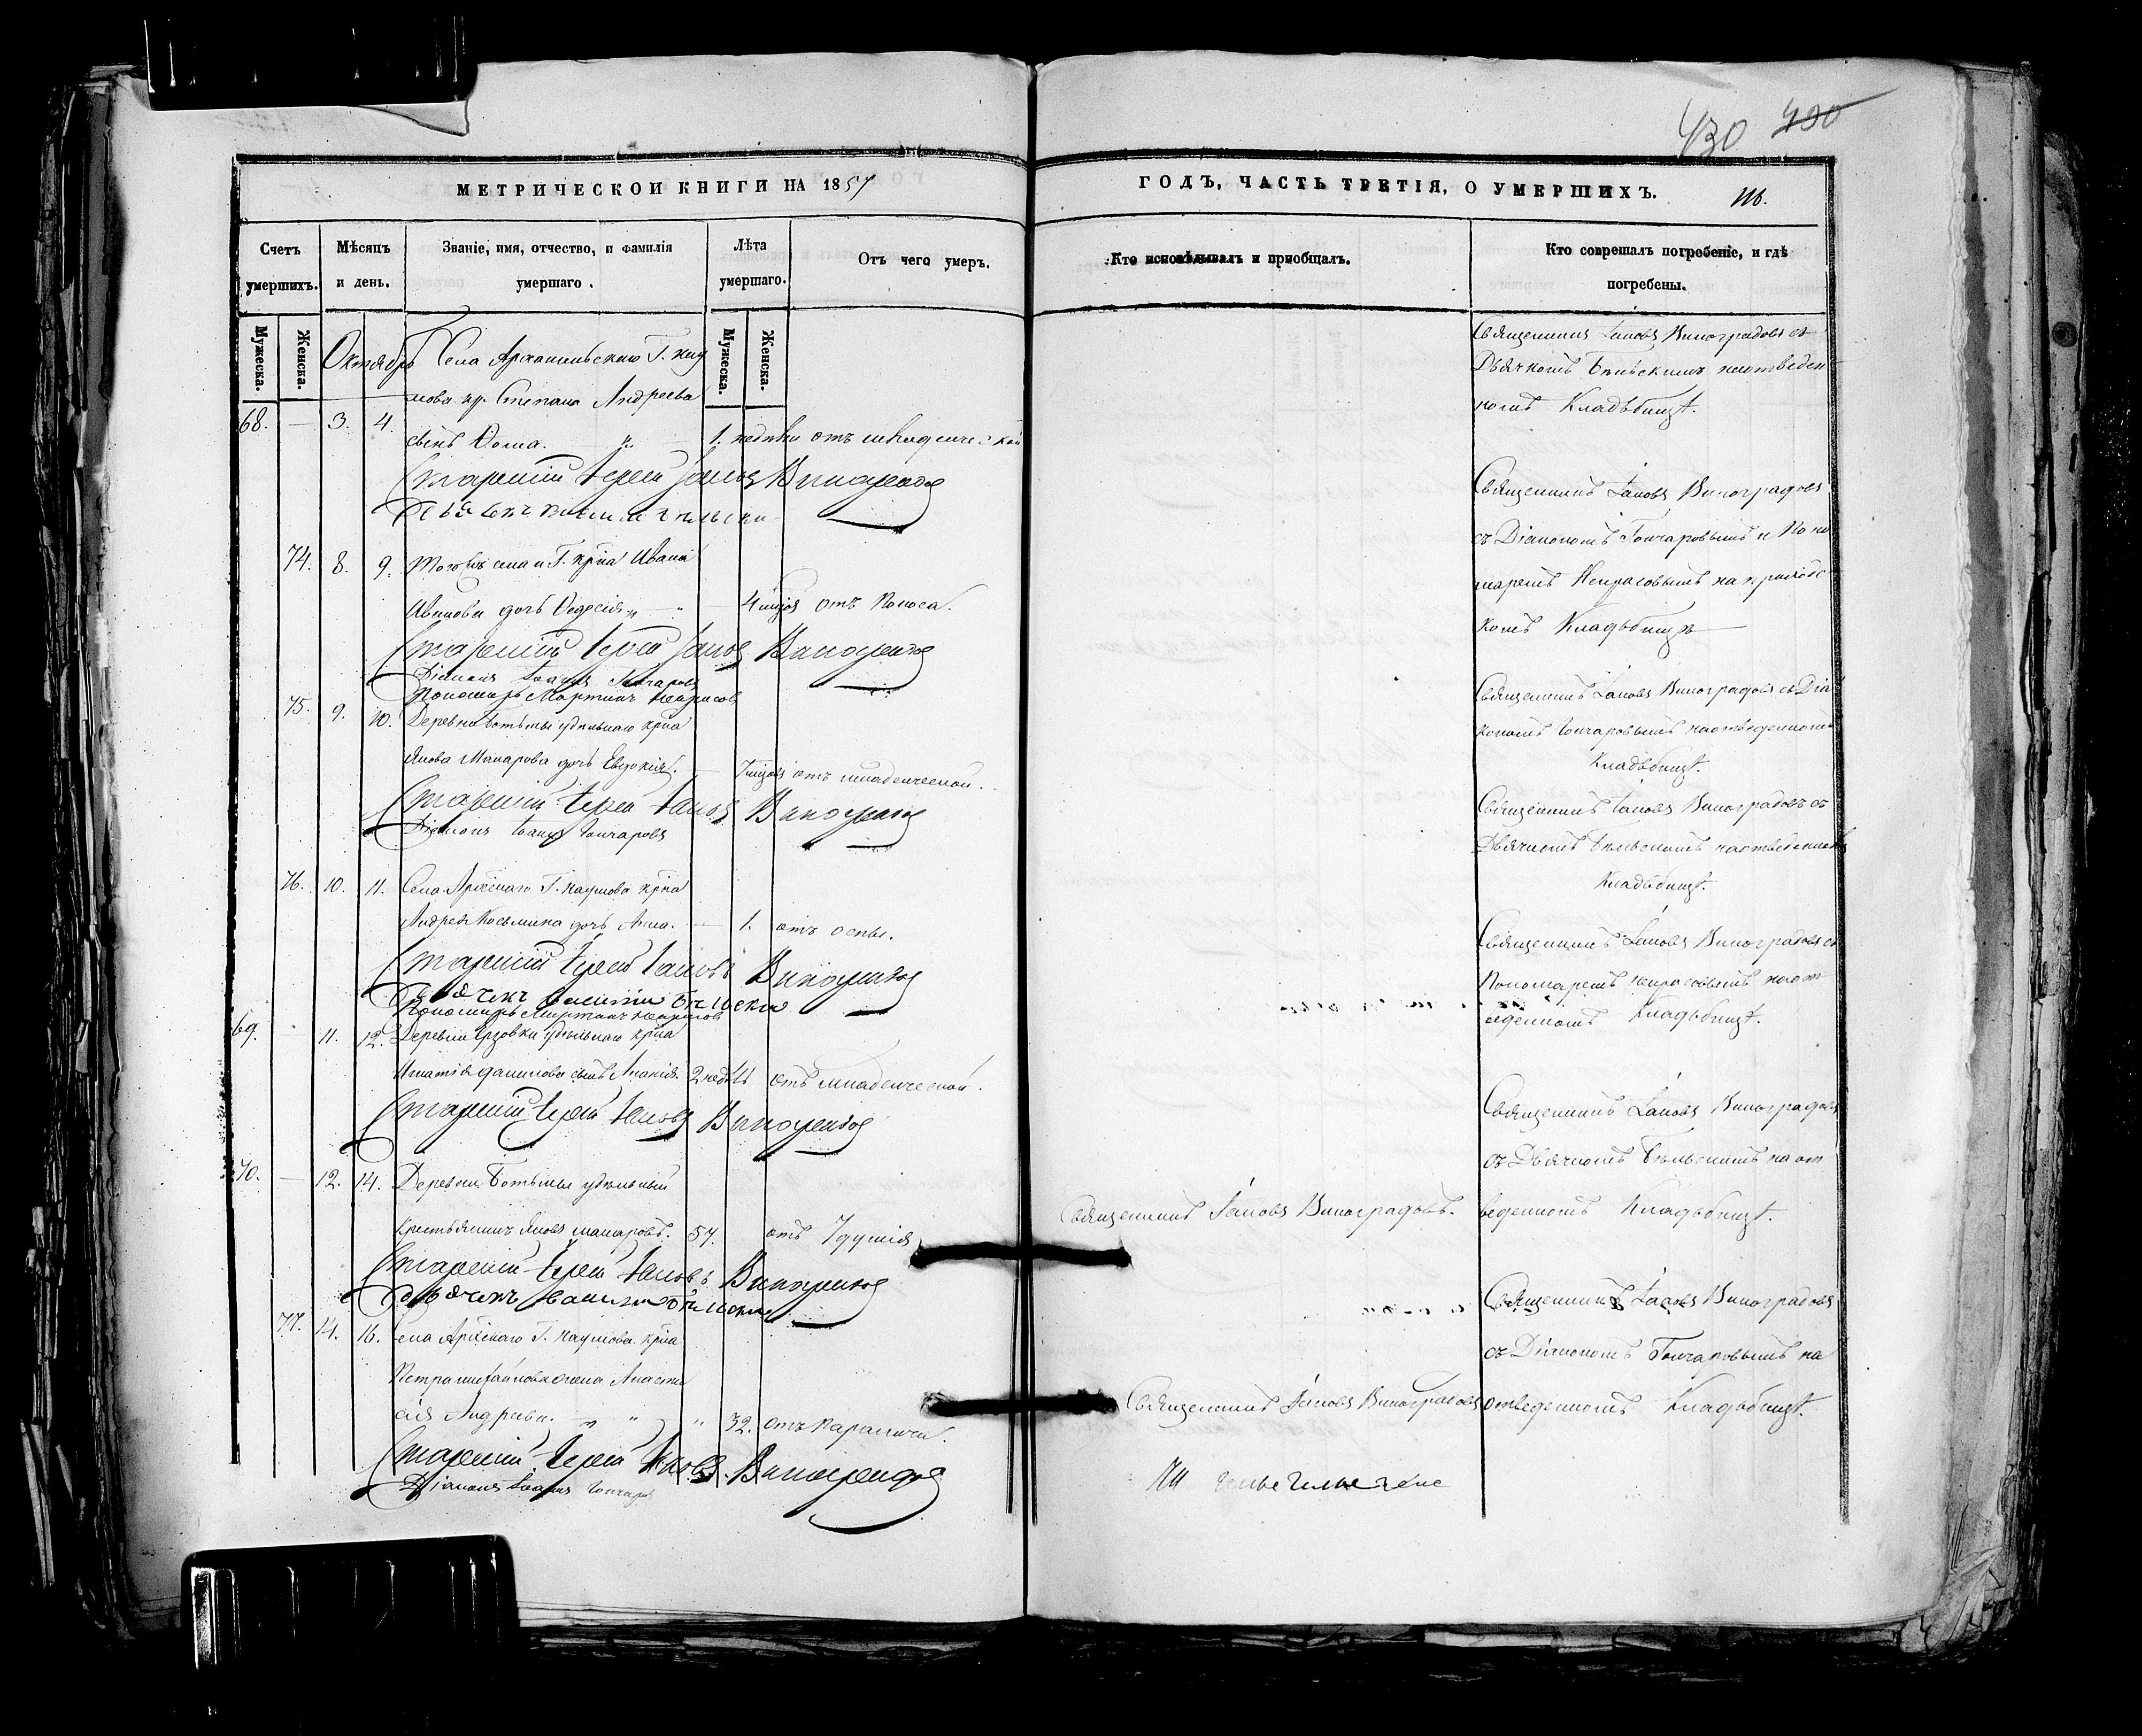 430 430
МЕТРИЧЕСКОЙ КНИГИ НА 1857
ГОДЪ, ЧАСТЬ ТРЕТІЯ, О УМЕРШИХЪ.
Счетъ умершихъ.
Мѣсяцъ и день.
Званіе, имя, отчество, и фамилія умершаго.
Лѣта умершаго.
Отъ чего умеръ.
Кто исповѣдывалъ и пріобщалъ.
Кто совершалъ погребеніе, и гдѣ погребены.
Мужеска.
Женска.
Мужеска.
Женска.
Октябрь
Села Архангельскаго Г. Нау
мова кр. Степана Андреева
68. — 3. 4. сынъ Ѳома. 1. недѣли отъ младенческой
Священникъ Іаковъ Виноградовъ съ
Дьячкомъ Бѣльскимъ на отведен
номъ Кладьбищѣ.
Старшій Іерей Іаковъ Виноградовъ
74. 8. 9. Тогожъ села и Г. крна Ивана
Иванова дочь 4 мцов отъ поноса.
Священникъ Іаковъ Виноградовъ
съ Діакономъ Гончаровымъ и Поно
маремъ Некрасовымъ на приходс
комъ Кладьбищѣ
Старшій Іерей Іаковъ Виноградовъ
Діаконъ Іоаннъ Гончаровъ
Пономарь Мартинъ Некрасовъ
75. 9. 10. Деревни Ботьмы удѣльнаго крна
Якова Макарова дочь Евдокія. 7 мцовъ отъ младенческой.
Священникъ Іаковъ Виноградовъ съ Діа
кономъ Гончаровымъ на отведенномъ
Кладьбищѣ.
Старшій Іерей Іаковъ Виноградовъ
Діаконъ Іоаннъ Гончаровъ
76. 10. 11. Села Архскаго Г. Наумова крна
Андрея Косьмина дочь Анна. 1. отъ оспы.
Священникъ Іаковъ Виноградовъ съ
Дьячкомъ Бѣльскимъ на отведенномъ
Кладьбищѣ.
Старшій Іерей Іаковъ Виноградовъ
Дьячекъ Василій Бѣльскій
Пономарь Мартинъ Некрасовъ
69. — 11. 12. Деревни Ерзовки удѣльнаго крна
Игнатія Данилова сынъ Ананія. 2 недѣль отъ младенческой.
Священникъ Іаковъ Виноградовъ съ
Пономаремъ Некрасовымъ на от
веденномъ Кладьбищѣ.
Старшій Іерей Іаковъ Виноградовъ
70. — 12. 14. Деревни Ботьмы удѣльный
Крестьянинъ Яковъ Макаровъ. 57. отъ Удушія
Священникъ Іаковъ Виноградовъ.
Священникъ Іаковъ Виноградовъ
съ Дьячкомъ Бѣльскимъ на от
веденномъ Кладьбищѣ.
Старшій Іерей Іаковъ Виноградовъ
Дьячекъ Василій Бѣльскій
77. 14. 16. Села Архскаго Г. Наумова крна
Петра Михайлова жена Анаста
сія Андреева. 32. отъ Паралича.
Священникъ Іаковъ Виноградовъ
Священникъ Іаковъ Виноградовъ
съ Діакономъ Гончаровымъ на
отведенномъ Кладьбищѣ.
Старшій Іерей Іаковъ Виноградовъ
Діаконъ Іоаннъ Гончаровъ